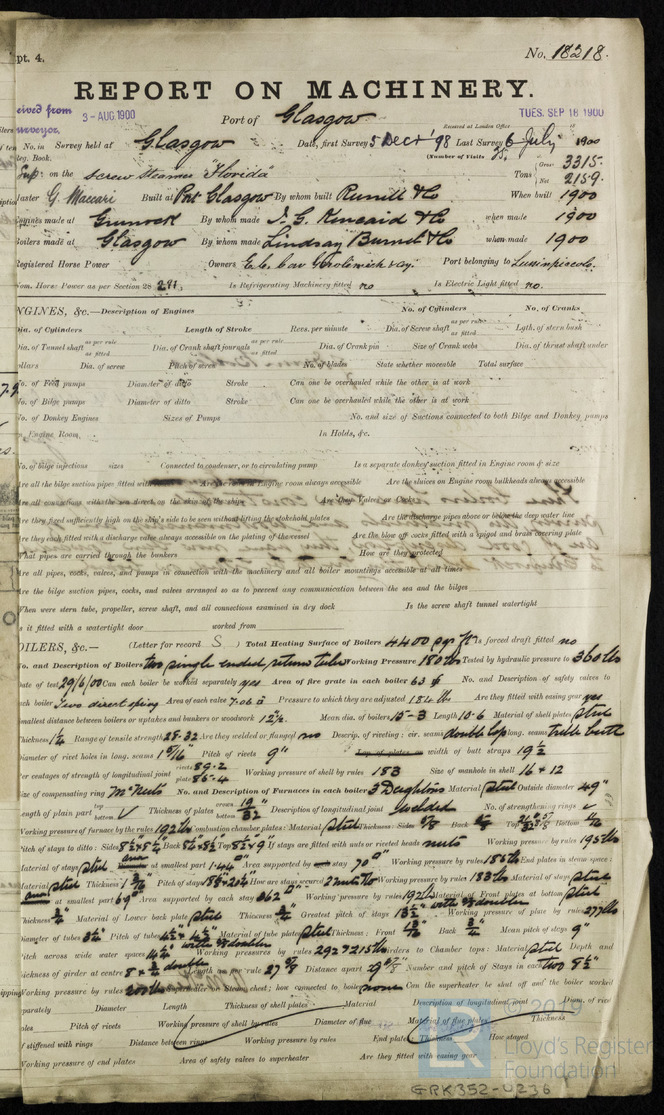 pt. 4.
No. 18218.
REPORT ON MACHINERY.
eived from
3 - AUG. 1900
Port of Glasgow
TUES. SEP 18 1900
Received at London Office
No. in Survey held at Glasgow Date, first Survey 5 Decr '98 Last Survey 6 July 1900
Reg. Book. (Number of Visits
on the Screw Steamer "Florida" Tons Gross 3315.
Net 2159.
Master G. Maccari Built at Port Glasgow By whom built Russell & Co When built 1900
Engines made at Greenock By whom made J. G. Kincaid & Co when made 1900
Boilers made at Glasgow By whom made Lindsay Burnet & Co when made 1900
Registered Horse Power Owners Port belonging to Lussinpiccolo.
Nom. Horse Power as per Section 28 291 Is Refrigerating Machinery fitted no Is Electric Light fitted no.
ENGINES, &c.—Description of Engines No. of Cylinders No. of Cranks
Dia. of Cylinders Length of Stroke Revs. per minute Dia. of Screw shaft as per rule as fitted Lgth. of stern bush
Dia. of Tunnel shaft as per rule as fitted Dia. of Crank shaft journals as per rule as fitted Dia. of Crank pin Size of Crank webs Dia. of thrust shaft under
collars Dia. of screw Pitch of screw No. of blades State whether moveable Total surface
No. of Feed pumps Diameter of ditto Stroke Can one be overhauled while the other is at work
No. of Bilge pumps Diameter of ditto Stroke Can one be overhauled while the other is at work
No. of Donkey Engines Sizes of Pumps No. and size of Suctions connected to both Bilge and Donkey pumps
In Engine Room In Holds, &c.
No. of bilge injections sizes Connected to condenser, or to circulating pump Is a separate donkey suction fitted in Engine room & size
Are all the bilge suction pipes fitted with Are the roses in Engine room always accessible Are the sluices on Engine room bulkheads always accessible
Are all connections with the sea direct on the skin of the ship Are they Valves or Cocks
Are they fixed sufficiently high on the ship's side to be seen without lifting the stokehold plates Are the discharge pipes above or below the deep water line
Are they each fitted with a discharge valve always accessible on the plating of the vessel Are the blow off cocks fitted with a spigot and brass covering plate
What pipes are carried through the bunkers How are they protected
Are all pipes, cocks, valves, and pumps in connection with the machinery and all boiler mountings accessible at all times
Are the bilge suction pipes, cocks, and valves arranged so as to prevent any communication between the sea and the bilges
When were stern tube, propeller, screw shaft, and all connections examined in dry dock Is the screw shaft tunnel watertight
Is it fitted with a watertight door worked from
BOILERS, &c.— (Letter for record S ) Total Heating Surface of Boilers 4400 sq. ft Is forced draft fitted no
No. and Description of Boilers two single ended, return tube Working Pressure 180 lbs Tested by hydraulic pressure to 360 lbs
Date of test 29/6/00 Can each boiler be worked separately yes Area of fire grate in each boiler 63 No. and Description of safety valves to
each boiler Two direct spring Area of each valve 7.06 Pressure to which they are adjusted 184 lbs Are they fitted with easing gear yes
Smallest distance between boilers or uptakes and bunkers or woodwork 12" Mean dia. of boilers 15-3 Length 10.6 Material of shell plates Steel
Thickness 1 1/4 Range of tensile strength 28.32 Are they welded or flanged no Descrip. of riveting: cir. seams double lap long. seams treble butt
Diameter of rivet holes in long. seams 1 5/16" Pitch of rivets 9" Lap of plates or width of butt straps 19 1/2
Per centages of strength of longitudinal joint rivets 89.2 plate 85.4 Working pressure of shell by rules 183 Size of manhole in shell 16 + 12
Size of compensating ring McNeils No. and Description of Furnaces in each boiler 3 Deightons Material Steel Outside diameter 49"
Length of plain part top bottom Thickness of plates crown bottom 19/32 Description of longitudinal joint welded No. of strengthening rings
Working pressure of furnace by the rules 192 lbs Combustion chamber plates: Material Steel Thickness: Sides 5/8 Back Top Bottom
Pitch of stays to ditto: Sides Back Top If stays are fitted with nuts or riveted heads nuts Working pressure by rules 195 lbs
Material of stays Steel at smallest part 1.44 Area supported by each stay 70 Working pressure by rules 185 lbs End plates in steam space:
Material Steel Thickness 1 3/16 Pitch of stays How are stays secured 2 nuts Working pressure by rules 183 lbs Material of stays Steel
at smallest part 6.9 Area supported by each stay 362 Working pressure by rules 192 lbs Material of Front plates at bottom Steel
Thickness 3/4 Material of Lower back plate Steel Thickness 3/4 Greatest pitch of stays 13 1/2 Working pressure of plate by rules 277 lbs
Diameter of tubes 3 1/4 Pitch of tubes Material of tube plates Steel Thickness: Front 13/16 Back 3/4 Mean pitch of stays 9"
Pitch across wide water spaces 14 1/2 Working pressures by rules 292 + 215 lbs Girders to Chamber tops: Material Steel Depth and
thickness of girder at centre Length as per rule Distance apart Number and pitch of Stays in each two 8 1/2"
Working pressure by rules 200 lbs Steam chest; how connected to boiler none Can the superheater be shut off and the boiler worked
separately Diameter Length Thickness of shell plates Material Description of longitudinal joint Diam. of rivet
holes Pitch of rivets Working pressure of shell by rules Diameter of flue Material of flue plates Thickness
If stiffened with rings Distance between rings Working pressure by rules End plates: Thickness How stayed
Working pressure of end plates Area of safety valves to superheater Are they fitted with easing gear
© 2019
Lloyd's Register
Foundation
GRK352-0236